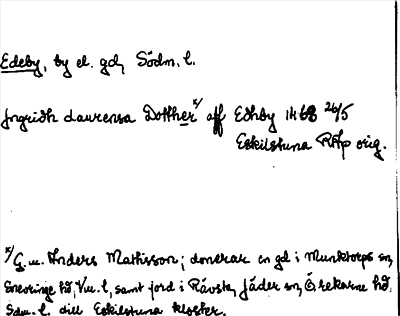 Edeby, by el. gd, Södm. l.
Jngridh Laurensa Dotther x/ aff Edhby 1468 26/5
Eskilstuna RAp orig.
x/ G. m. Anders Mathisson; donerar en gd i Munktorps sn,
Snevringe hd, Vm. l, samt jord i Rävsta, Jäder sn, Örekarne hd.
Sdm. l. till Eskilstuna kloster.